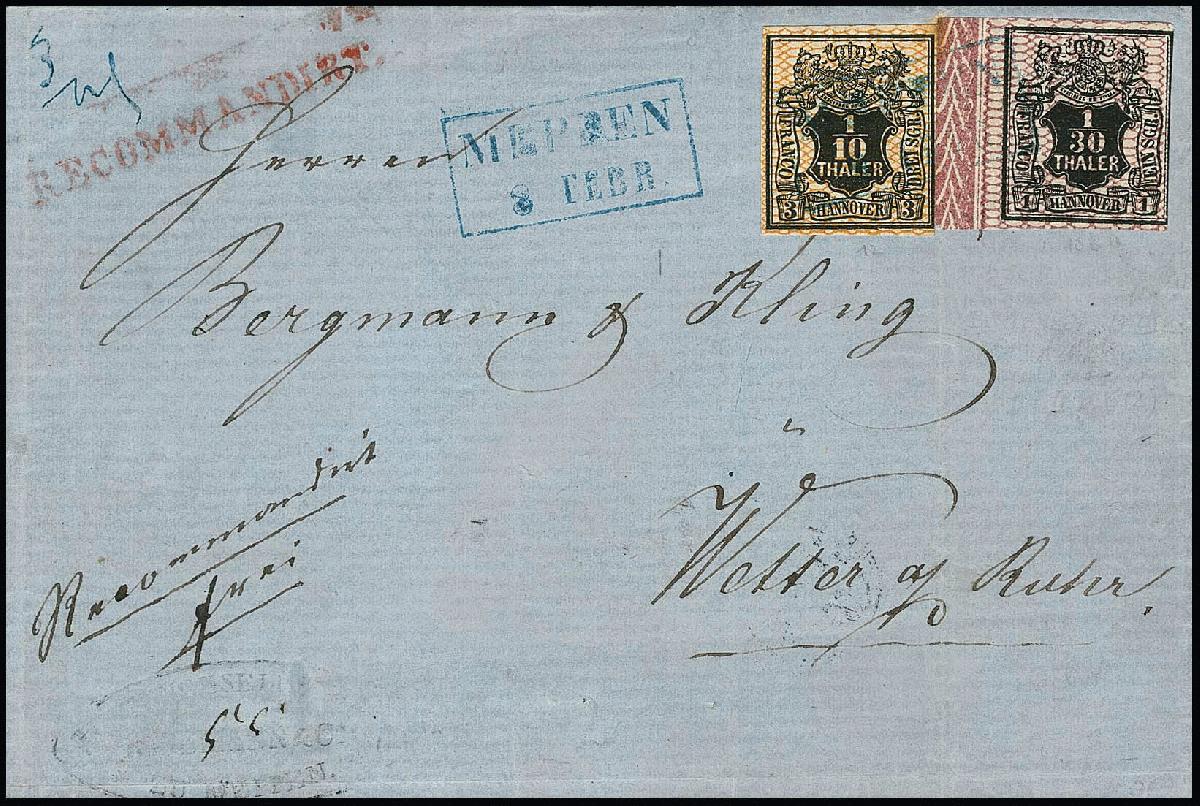 RECOMMANDIRT.
MEPPEN
8 FEBR.
1
10
THALER
FRANCO
3 HANNOVER 3
1
30
THALER
FRANCO
1 HANNOVER 1
Herren
Bergmann & Kling
Wetter a/ Ruhr.
Recommandirt
frei
55